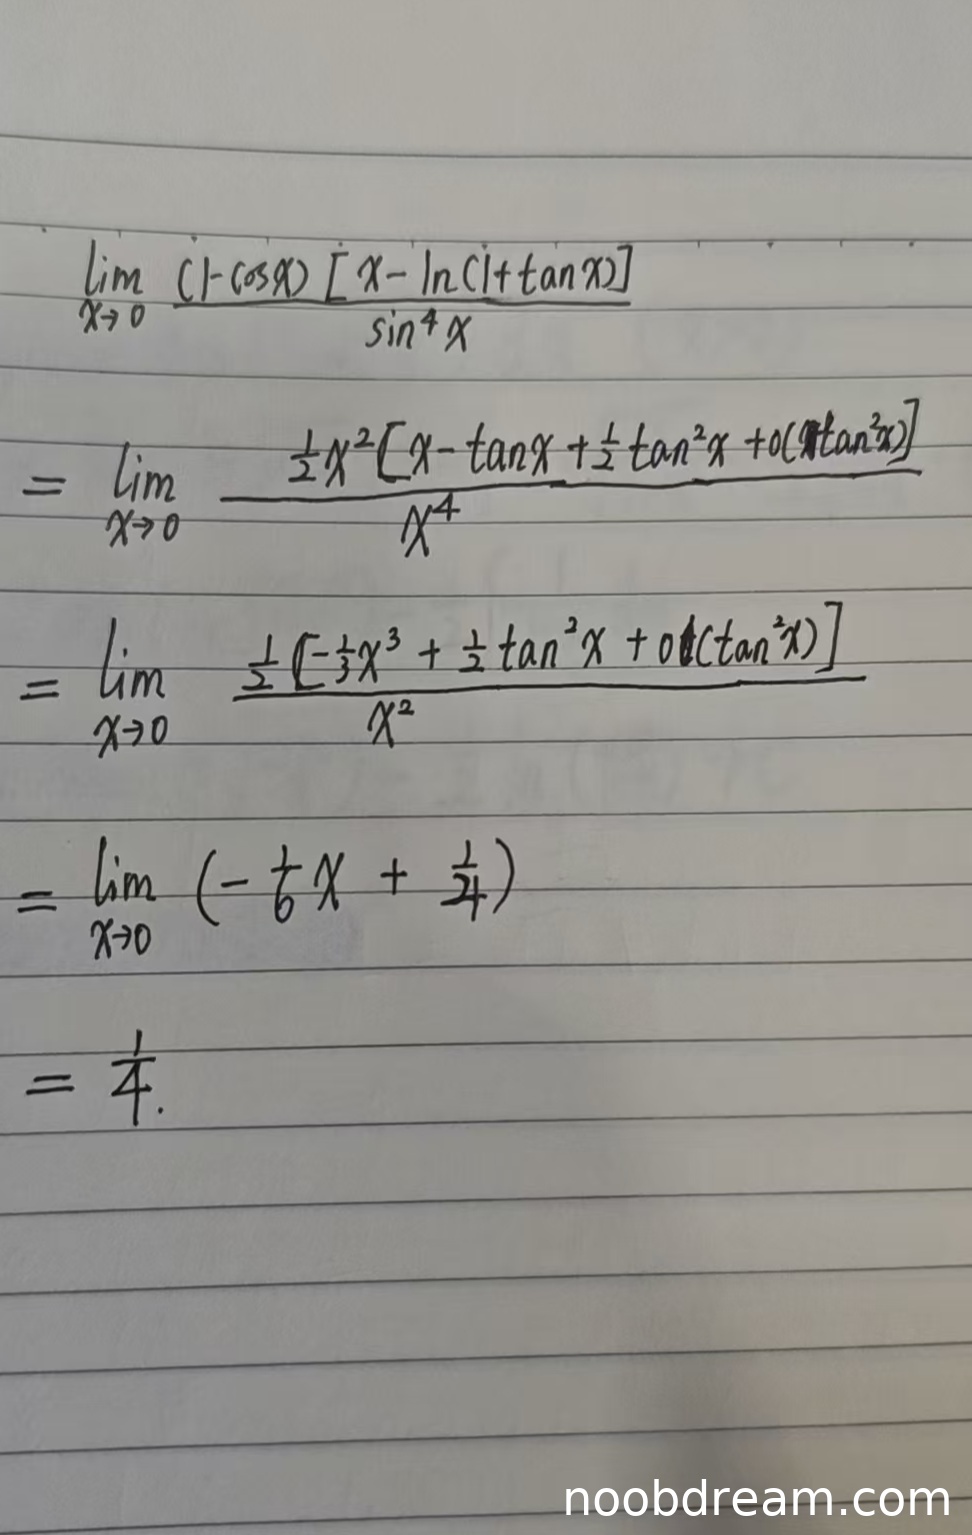 lim x→0 (1-cosx)[x-ln(1+tanx)] / sin⁴x
= lim x→0 ½x²[x-tanx+½tan²x+o(tan²x)] / x⁴
= lim x→0 ½[-⅓x³+½tan²x+o(tan²x)] / x²
= lim x→0 (-⅙x+¼)
= ¼.
noobdream.com